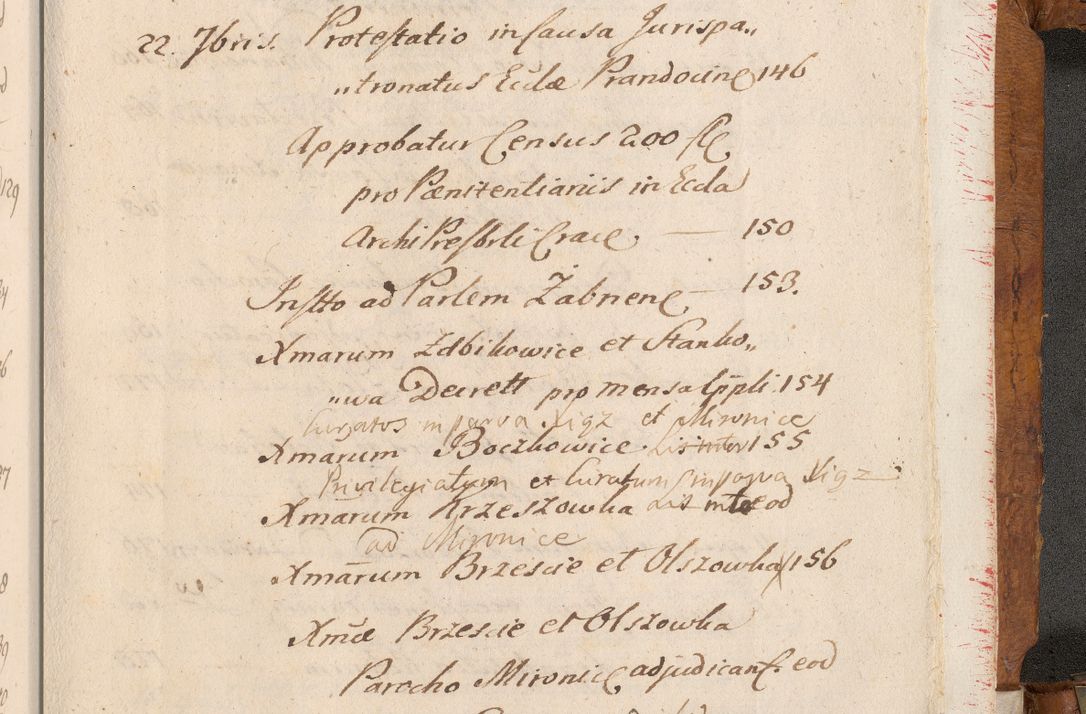 22. 7bris. Protestatio in Causa Jurispa„
„tronatus Eccłæ Prandocinę 146
Approbatur Census 200 fl
pro Pænitentiariis in Eccla
ArchiPresbrli Crace. — 150
Instto ad Parlem Żabnenę — 153.
Xmarum Zdbikowice et Stanko„
„wa Decrett pro mensa Cappli 154
Curatos in parva Xigz et Mironice
Xmarum Boczkowice Lis inter 155
Privilegiatum et Curatum in parva Xigz
Xmarum Krzeszowka Lis inter eod
ad Mironice
Xmarum Brzescie et Olszowka 156
Xmæ Brzescie et Olszowka
Parocho Mironic adjudican. eod